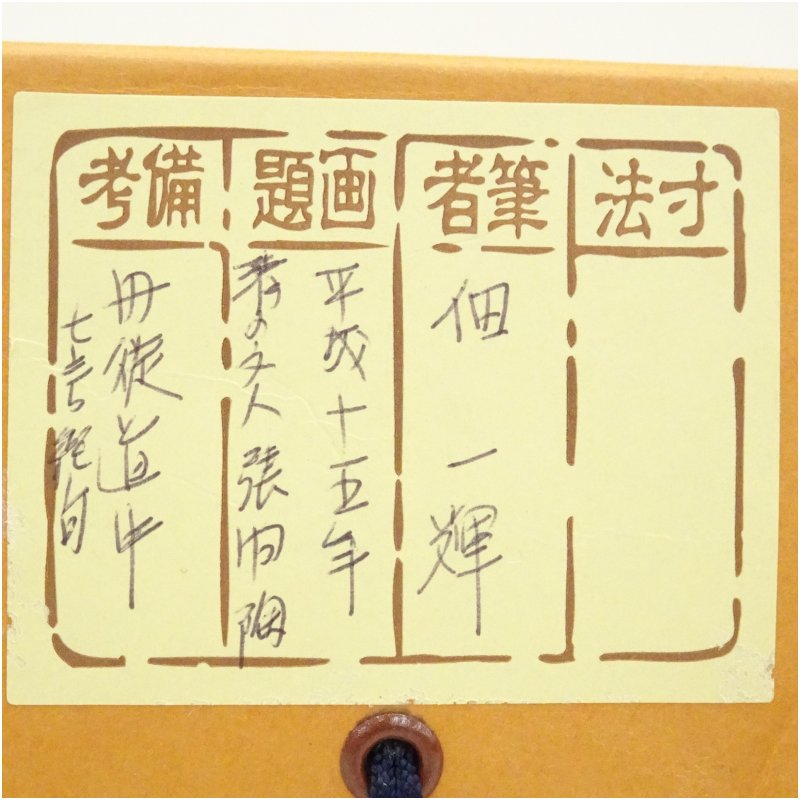 寸法
筆者
佃 一輝
画題
平成十五年
清の文人張問陶
備考
丹徒道中
七言絶句